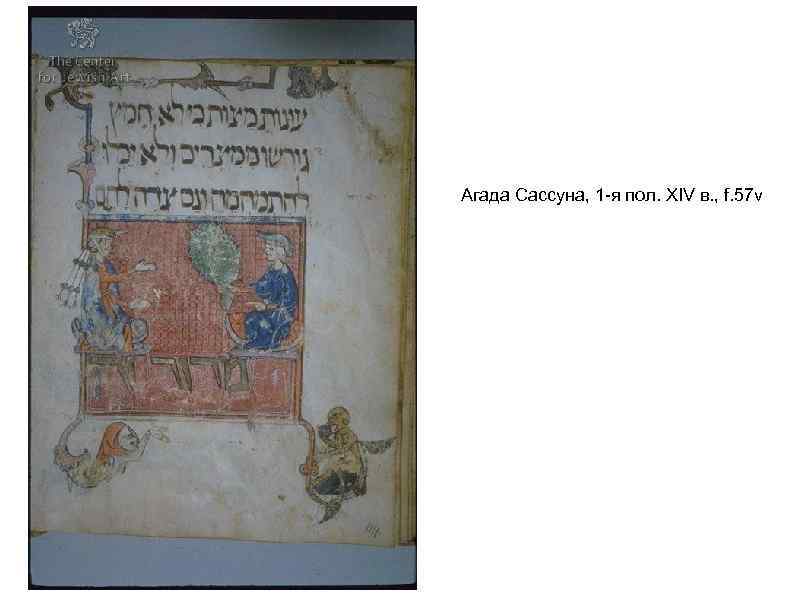 The Center
for Jewish Art
עוגות מצות כי לא חמץ
גורשו ממצרים ולא יכלו
להתמהמה וגם צדה להם
מרור
Агада Сассуна, 1-я пол. XIV в., f.57v